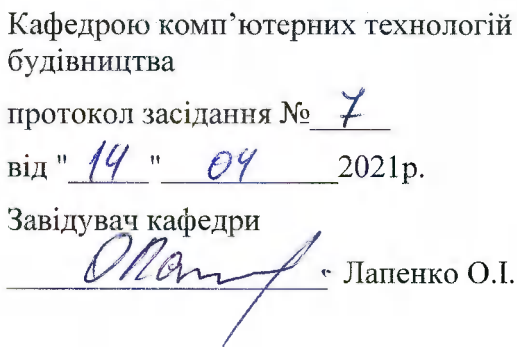 Кафедрою комп’ютерних технологій
будівництва
протокол засідання № 7
від " 14 " 04 2021р.
Завідувач кафедри
Лапенко О.І.